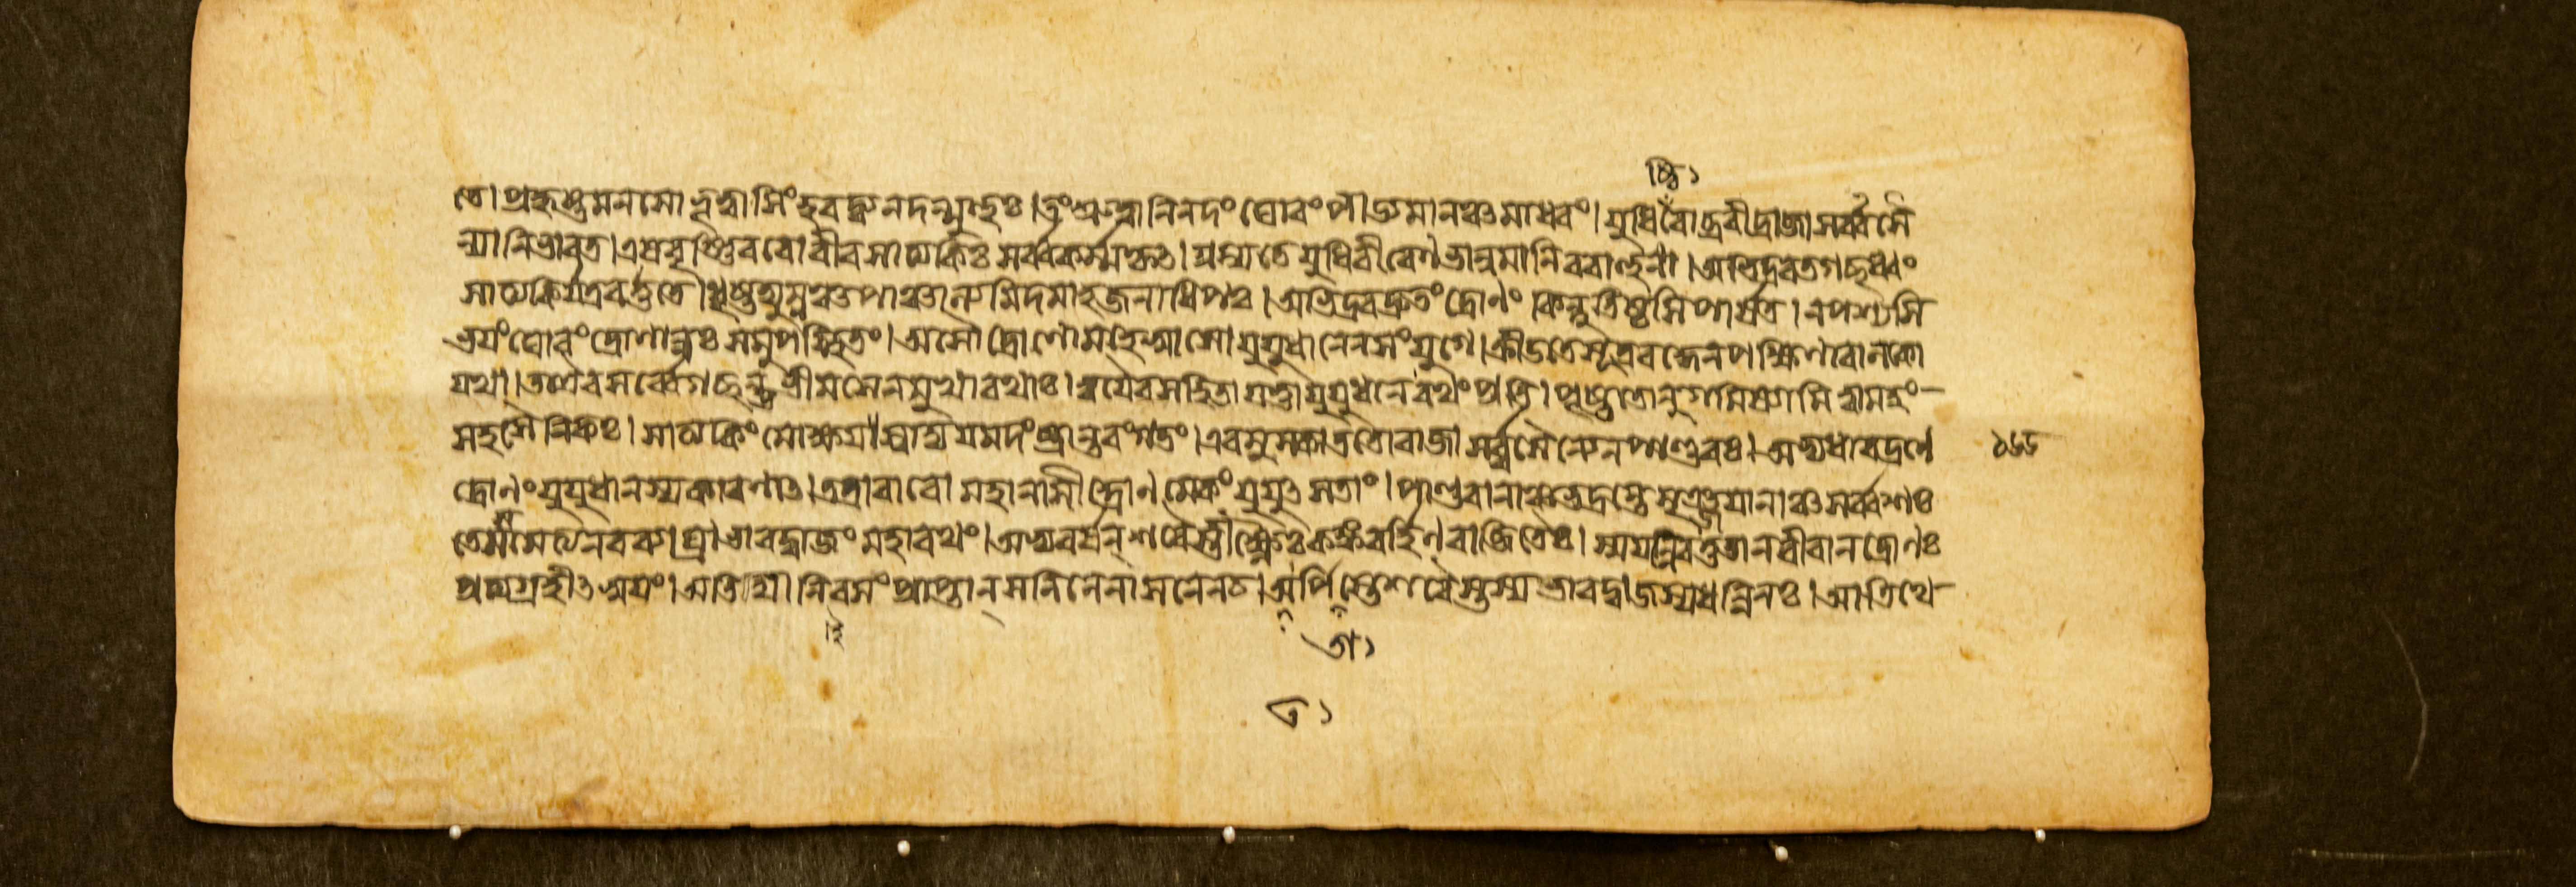 তে। প্রহৃষ্টমনসো ভূত্বা সিংহবদ্ব্যনদন্মুহুঃ। তং শ্রুত্বা নিনদং ঘোরং পীড্যমানঞ্চ মাধবং। যুধিষ্ঠিরোব্রবীদ্রাজা সর্ব্বসৈ
ন্যানি ভারত। এষ বৃষ্ণিবরো বীর সাত্যকিঃ সর্ব্বকর্ম্মকৃৎ। গ্রস্যতে যুধিবীরেণ ভানুমানিবরাহুনা। অভিদ্রবত গছধ্বং
সাত্যকির্যত্রবর্ত্ততে। ধৃষ্টদ্যুম্নঞ্চ পাঞ্চাল্যমিদমাহ জনাধিপঃ। অভিদ্রবদ্রুতং দ্রোণং কিন্নুতিষ্ঠসি পার্ষত। নপশ্যসি
ভয়ং ঘোরং দ্রোণান্নঃ সমুপস্থিতং। অসৌ দ্রোণো মহেষ্বাসো যুযুধানেনসংযুগে। ক্রীডতে সূত্রবদ্ধেন পক্ষিণা বালকো
যথা। তত্রৈব সর্ব্বেগছন্তু ভীমসেনমুখা রথাঃ। ত্বয়ৈবসহিতা যত্তা যুযুধানরথং প্রতি। পৃষ্ঠতোনুগমিষ্যামি ত্বামহং
সহসৈনিকঃ। সাত্যকিং মোক্ষয়স্বাদ্য যমদংষ্ট্রান্তরংগতং। এবমুক্ত্বা ততোরাজা সর্ব্বসৈন্যেনপাণ্ডবঃ। অভ্যধাবদ্রণে ১৬৬
দ্রোণং যুযুধানস্যকারণাৎ। তত্রারাবো মহানাসীদ্দ্রোণমেকং যুযুৎসতাং। পাণ্ডবানাঞ্চভদ্রন্তে সৃঞ্জয়ানাঞ্চসর্ব্বশঃ
তেসমেত্যনরব্যাঘ্রা ভারদ্বাজং মহারথং। অভ্যবর্ষন্ শরৈস্তীক্ষ্ণৈঃ কঙ্কবর্হিণবাজিতৈঃ। স্ময়ন্নেবতুতানবীরান দ্রোণঃ
প্রত্যগ্রহীৎস্বয়ং। অতিথীনিবসংপ্রাপ্তান্ সলিলেনাসনেনচ। তর্পিতাস্তেশরৈস্তস্য ভারদ্বাজস্যধন্বিনঃ। আতিথে